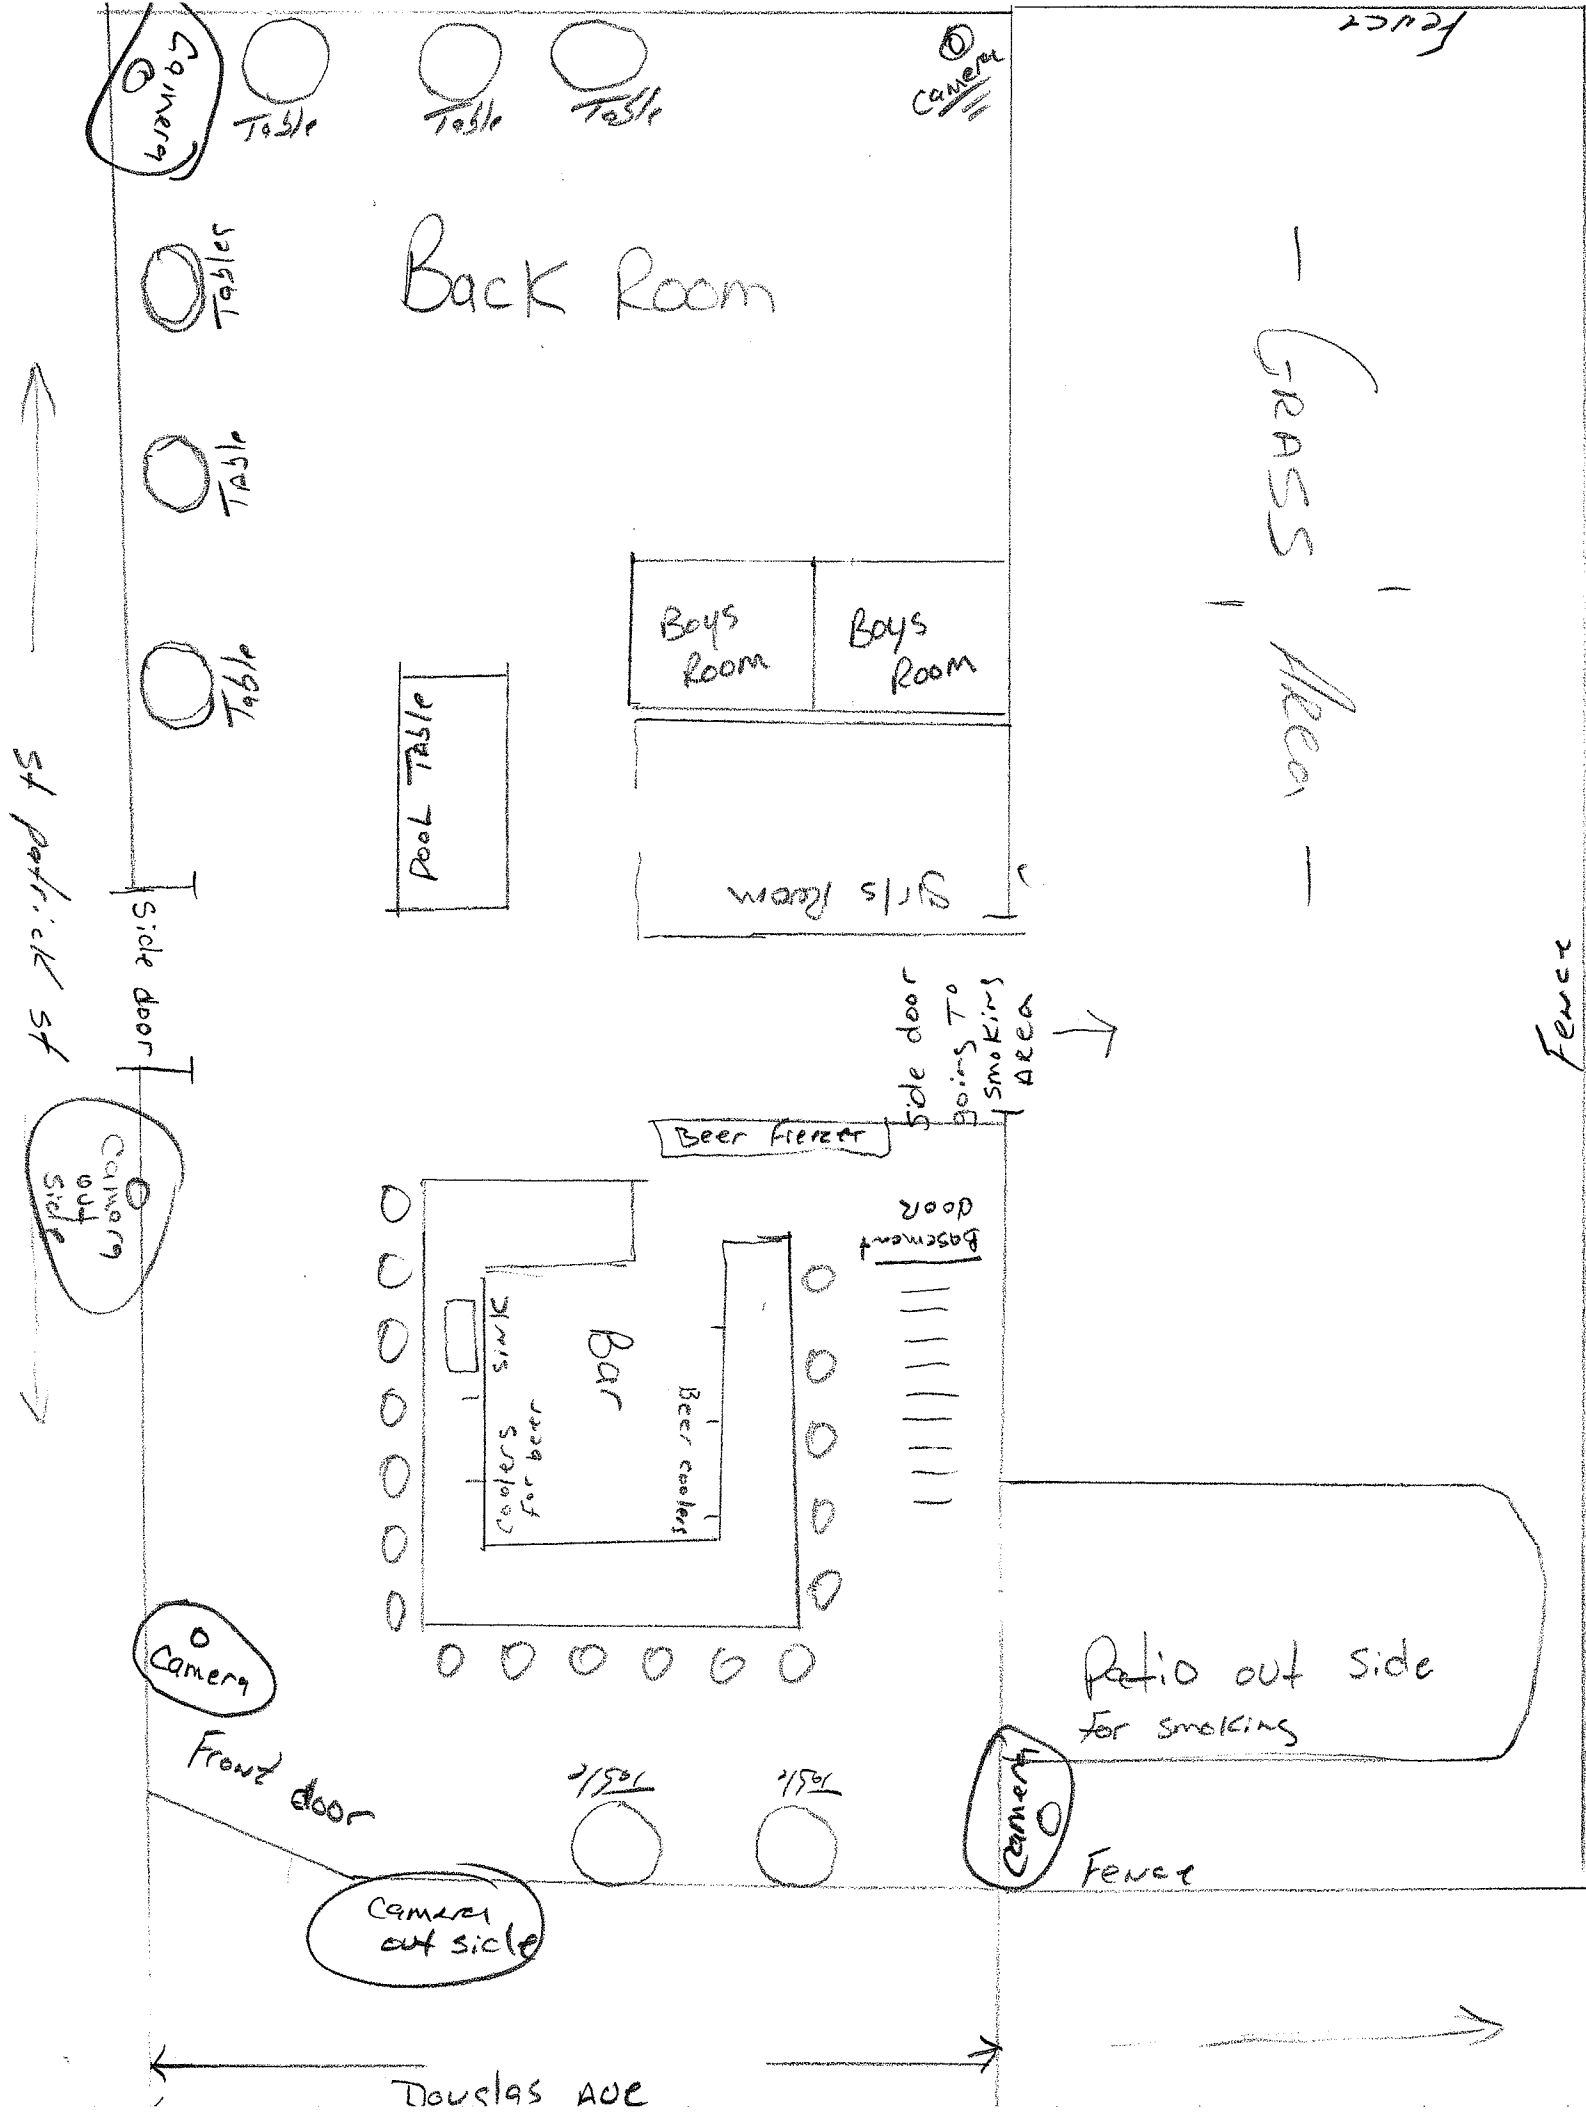 Camera
Table
Table
Table
Camera
Fence
Back Room
Tables
Table
Table
GRASS Area
Boys
Room
Boys
Room
Pool Table
girls Room
St patrick St
Side door
Side door
going To
smoking
Area
Fence
Beer Fierzer
Camera
out
side
Basement
dooR
Sink
Bar
Coolers
For beer
Beer coolers
Camera
Front door
Table
Table
Patio out side
For smoking
Camera
Fence
Camera
out side
Douglas Ave